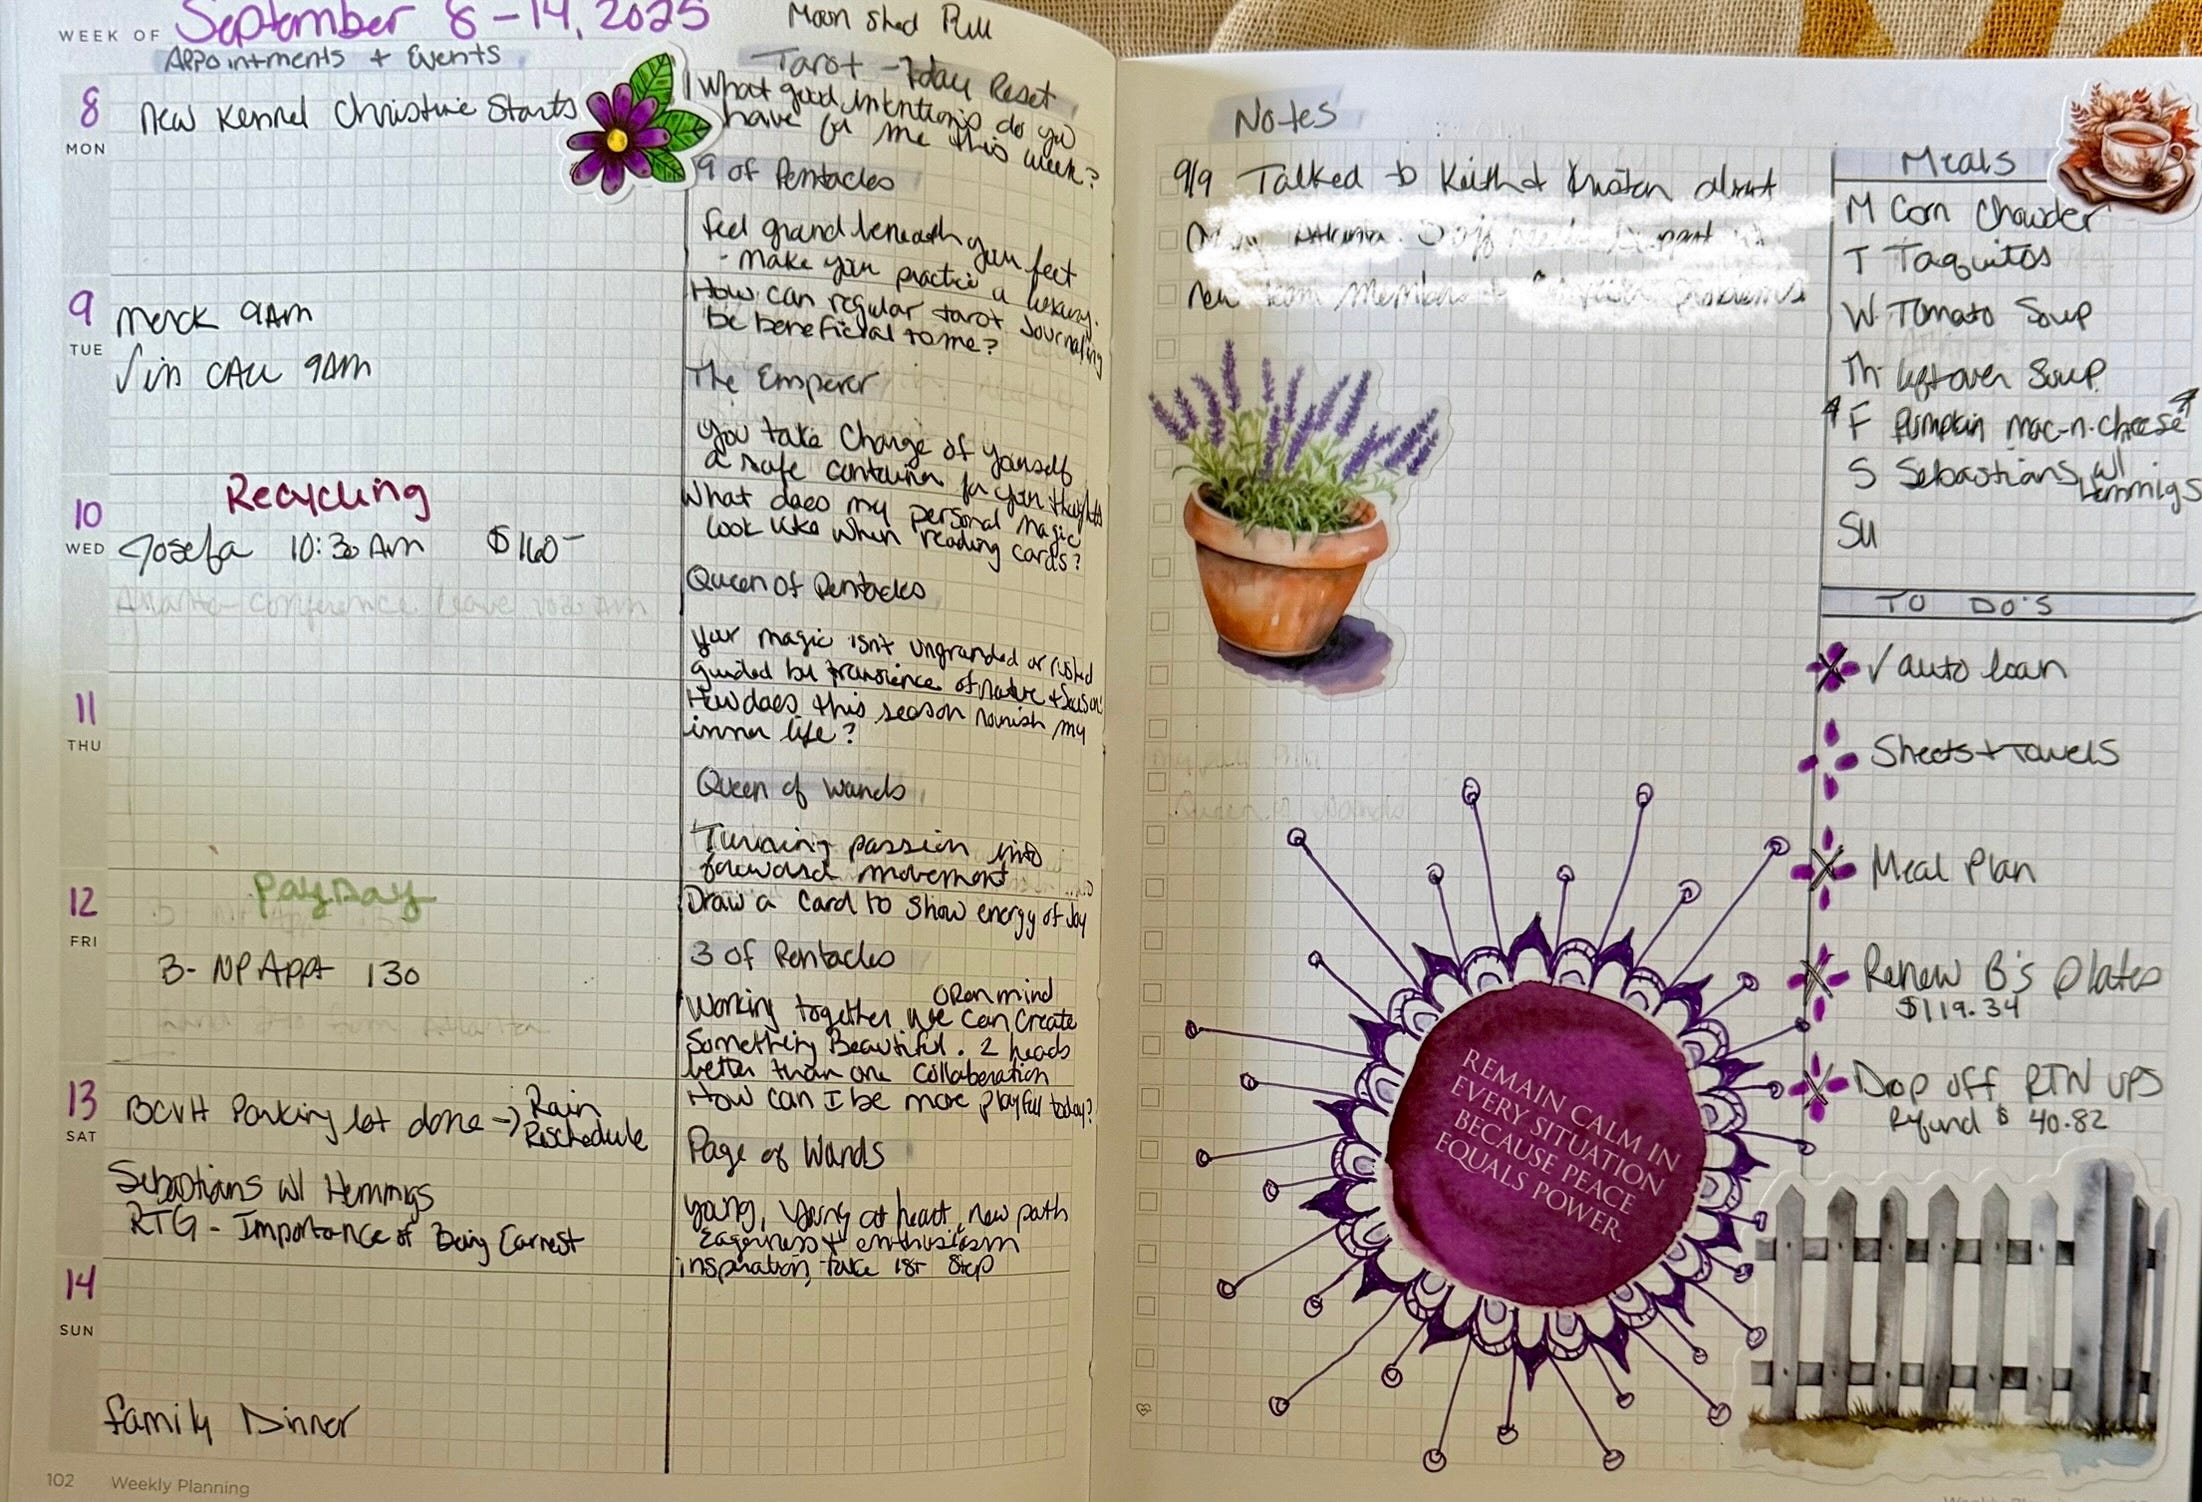 WEEK OF September 8-14, 2025
Appointments + Events
8
MON
New Kennel Christine Starts
9
TUE
Merck 9AM
√ in CALL 9AM
Recycling
10
WED
Josefa 10:30 AM $160-
Atlanta Conference leave
11
THU
PayDay
12
FRI
B- NP APPt 130
13
SAT
BCVH Parking lot done → Rain
Reschedule
Sebastians w/ Hemmigs
RTG - Importance of Being Earnest
14
SUN
family Dinner
102 Weekly Planning
Moon Shed Pull
Tarot - 7day Reset
What good intentions do you
have for me this week?
9 of Pentacles
feel grand beneath your feet
- make your practice a luxury.
How can regular tarot Journaling
be beneficial to me?
The Emperer
you take Charge of yourself
a safe container for your thoughts
What does my personal magic
look like when reading cards?
Queen of Pentacles
your magic isn't ungranded or rushed
guided by transience of nature + Season
How does this season nourish my
inner life?
Queen of Wands
Turning passion into
forward movement
Draw a Card to show energy of Joy
3 of Pentacles
open mind
Working together we can create
Something Beautiful. 2 heads
better than one collaberation
How can I be more playful today?
Page of Wands
young, young at heart, new path
Eagerness + enthusiasm
inspiration, take 1st Step
Notes
9/9 Talked to Keith + Kristen about
new team members
Queen of Wands
REMAIN CALM IN
EVERY SITUATION
BECAUSE PEACE
EQUALS POWER.
Meals
M Corn Chowder
T Taquitos
W Tomato Soup
Th leftover Soup
F Pumpkin mac-n-cheese
S Sebastians w/
Hemmigs
SU
TO DO'S
√ auto loan
Sheets + Towels
Meal Plan
Renew B's plates
$119.34
Drop off RTN UPS
Refund $ 40.82